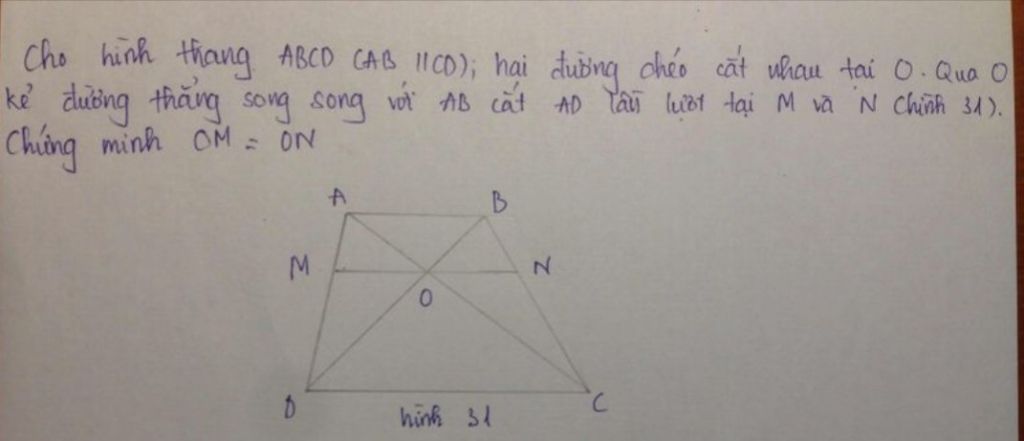 Cho hình thang ABCD (AB // CD); hai đường chéo cắt nhau tại O. Qua O
kẻ đường thẳng song song với AB cắt AD lần lượt tại M và N (hình 31).
Chứng minh OM = ON
A B
M N
O
D C
hình 31